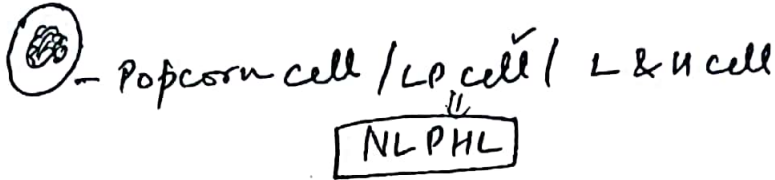 - Popcorn cell / LP cell / L & H cell
NLPHL